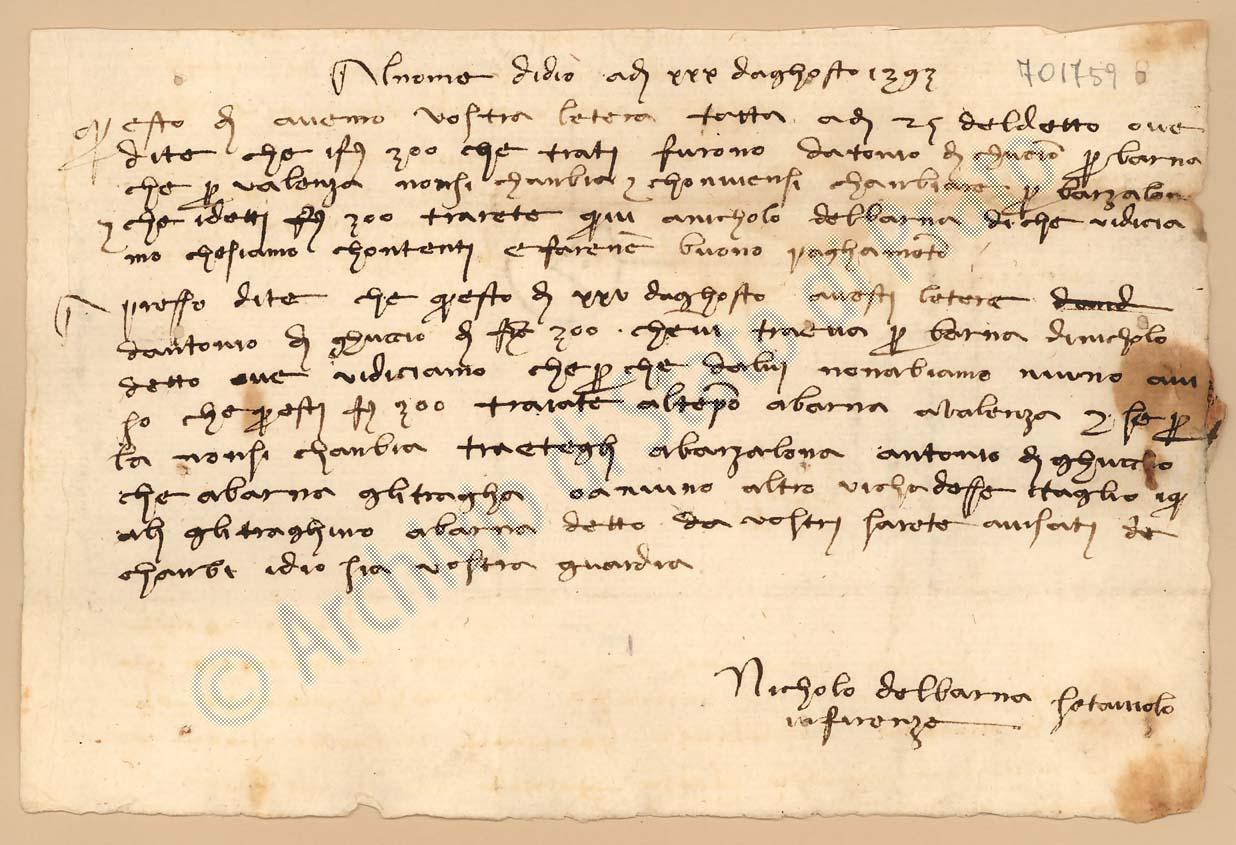 Al nome didio adj xxx daghosto 1393
701759
questo dj avemo vostra letera fatta adj 25 deldetto ove
dite che i f 300 che trati furono datonio dj ghuccio p barna
che p valenza nonsi chanbia e chonviensi chanbiare p barzalon
e che idetti f 300 trarete qui anicholo delbarna diche vidicia
mo chesiamo chontenti e farene buono paghamento
Apresso dite che questo dj xxv daghosto avesti letere
dantonio dj ghuccio dj f 300 chevi traeva p barna dinicholo
detto ove vidiciamo che p che dalui nonabiamo niuno avi
so che questi f 300 traiate altempo abarna avalenza e se p
la nonsi chanbia traetegli abarzalona antonio dj ghuccio
che abarna glitragha oaniuno altro vichadesse
glitraghino abarna detto da vostri sarete avisati de
chanbi idio sia vostra guardia
Nicholo delbarna setaiuolo
in firenze
© Archivio di Stato di Prato